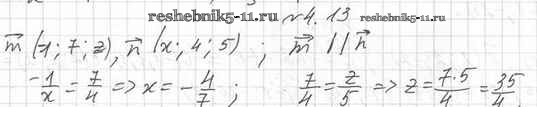 reshebnik5-11.ru №4.13 reshebnik5-11.ru
m⃗ (-1; 7; z), n⃗ (x; 4; 5) ; m⃗ || n⃗
-1/x = 7/4 => x = -4/7 ; 7/4 = z/5 => z = 7·5/4 = 35/4.